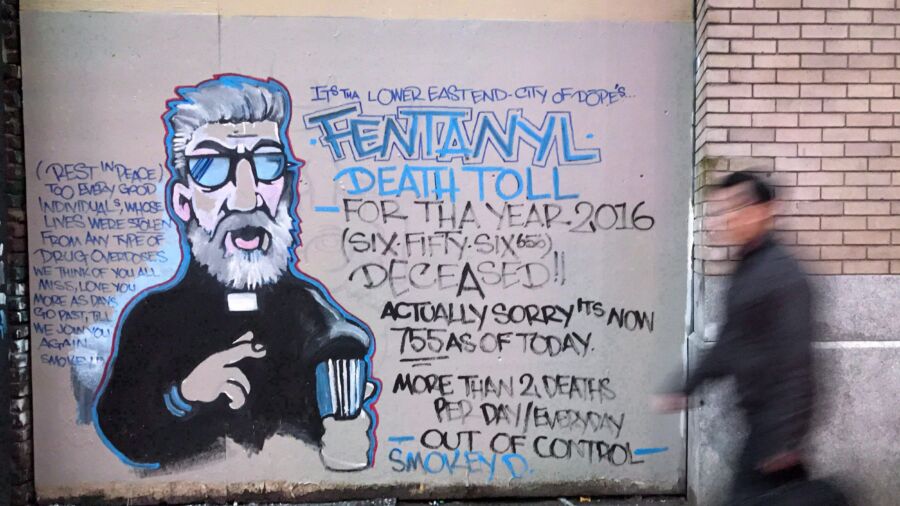 (REST IN PEACE)
TOO EVERY GOOD
INDIVIDUALS, WHOSE
LIVES WERE STOLEN
FROM ANY TYPE OF
DRUG OVERDOSES
WE THINK OF YOU ALL
MISS, LOVE YOU
MORE AS DAYS
GO PAST, TILL
WE JOIN YOU
AGAIN
SMOKEY D.
ITS THA LOWER EAST END-CITY OF DOPE'S...
FENTANYL
DEATH TOLL
-FOR THA YEAR-2016
(SIX-FIFTY-SIX 656)
DECEASED!!
ACTUALLY SORRY ITS NOW
755 AS OF TODAY.
MORE THAN 2, DEATHS
PER DAY/EVERYDAY
-OUT OF CONTROL-
SMOKEY D.